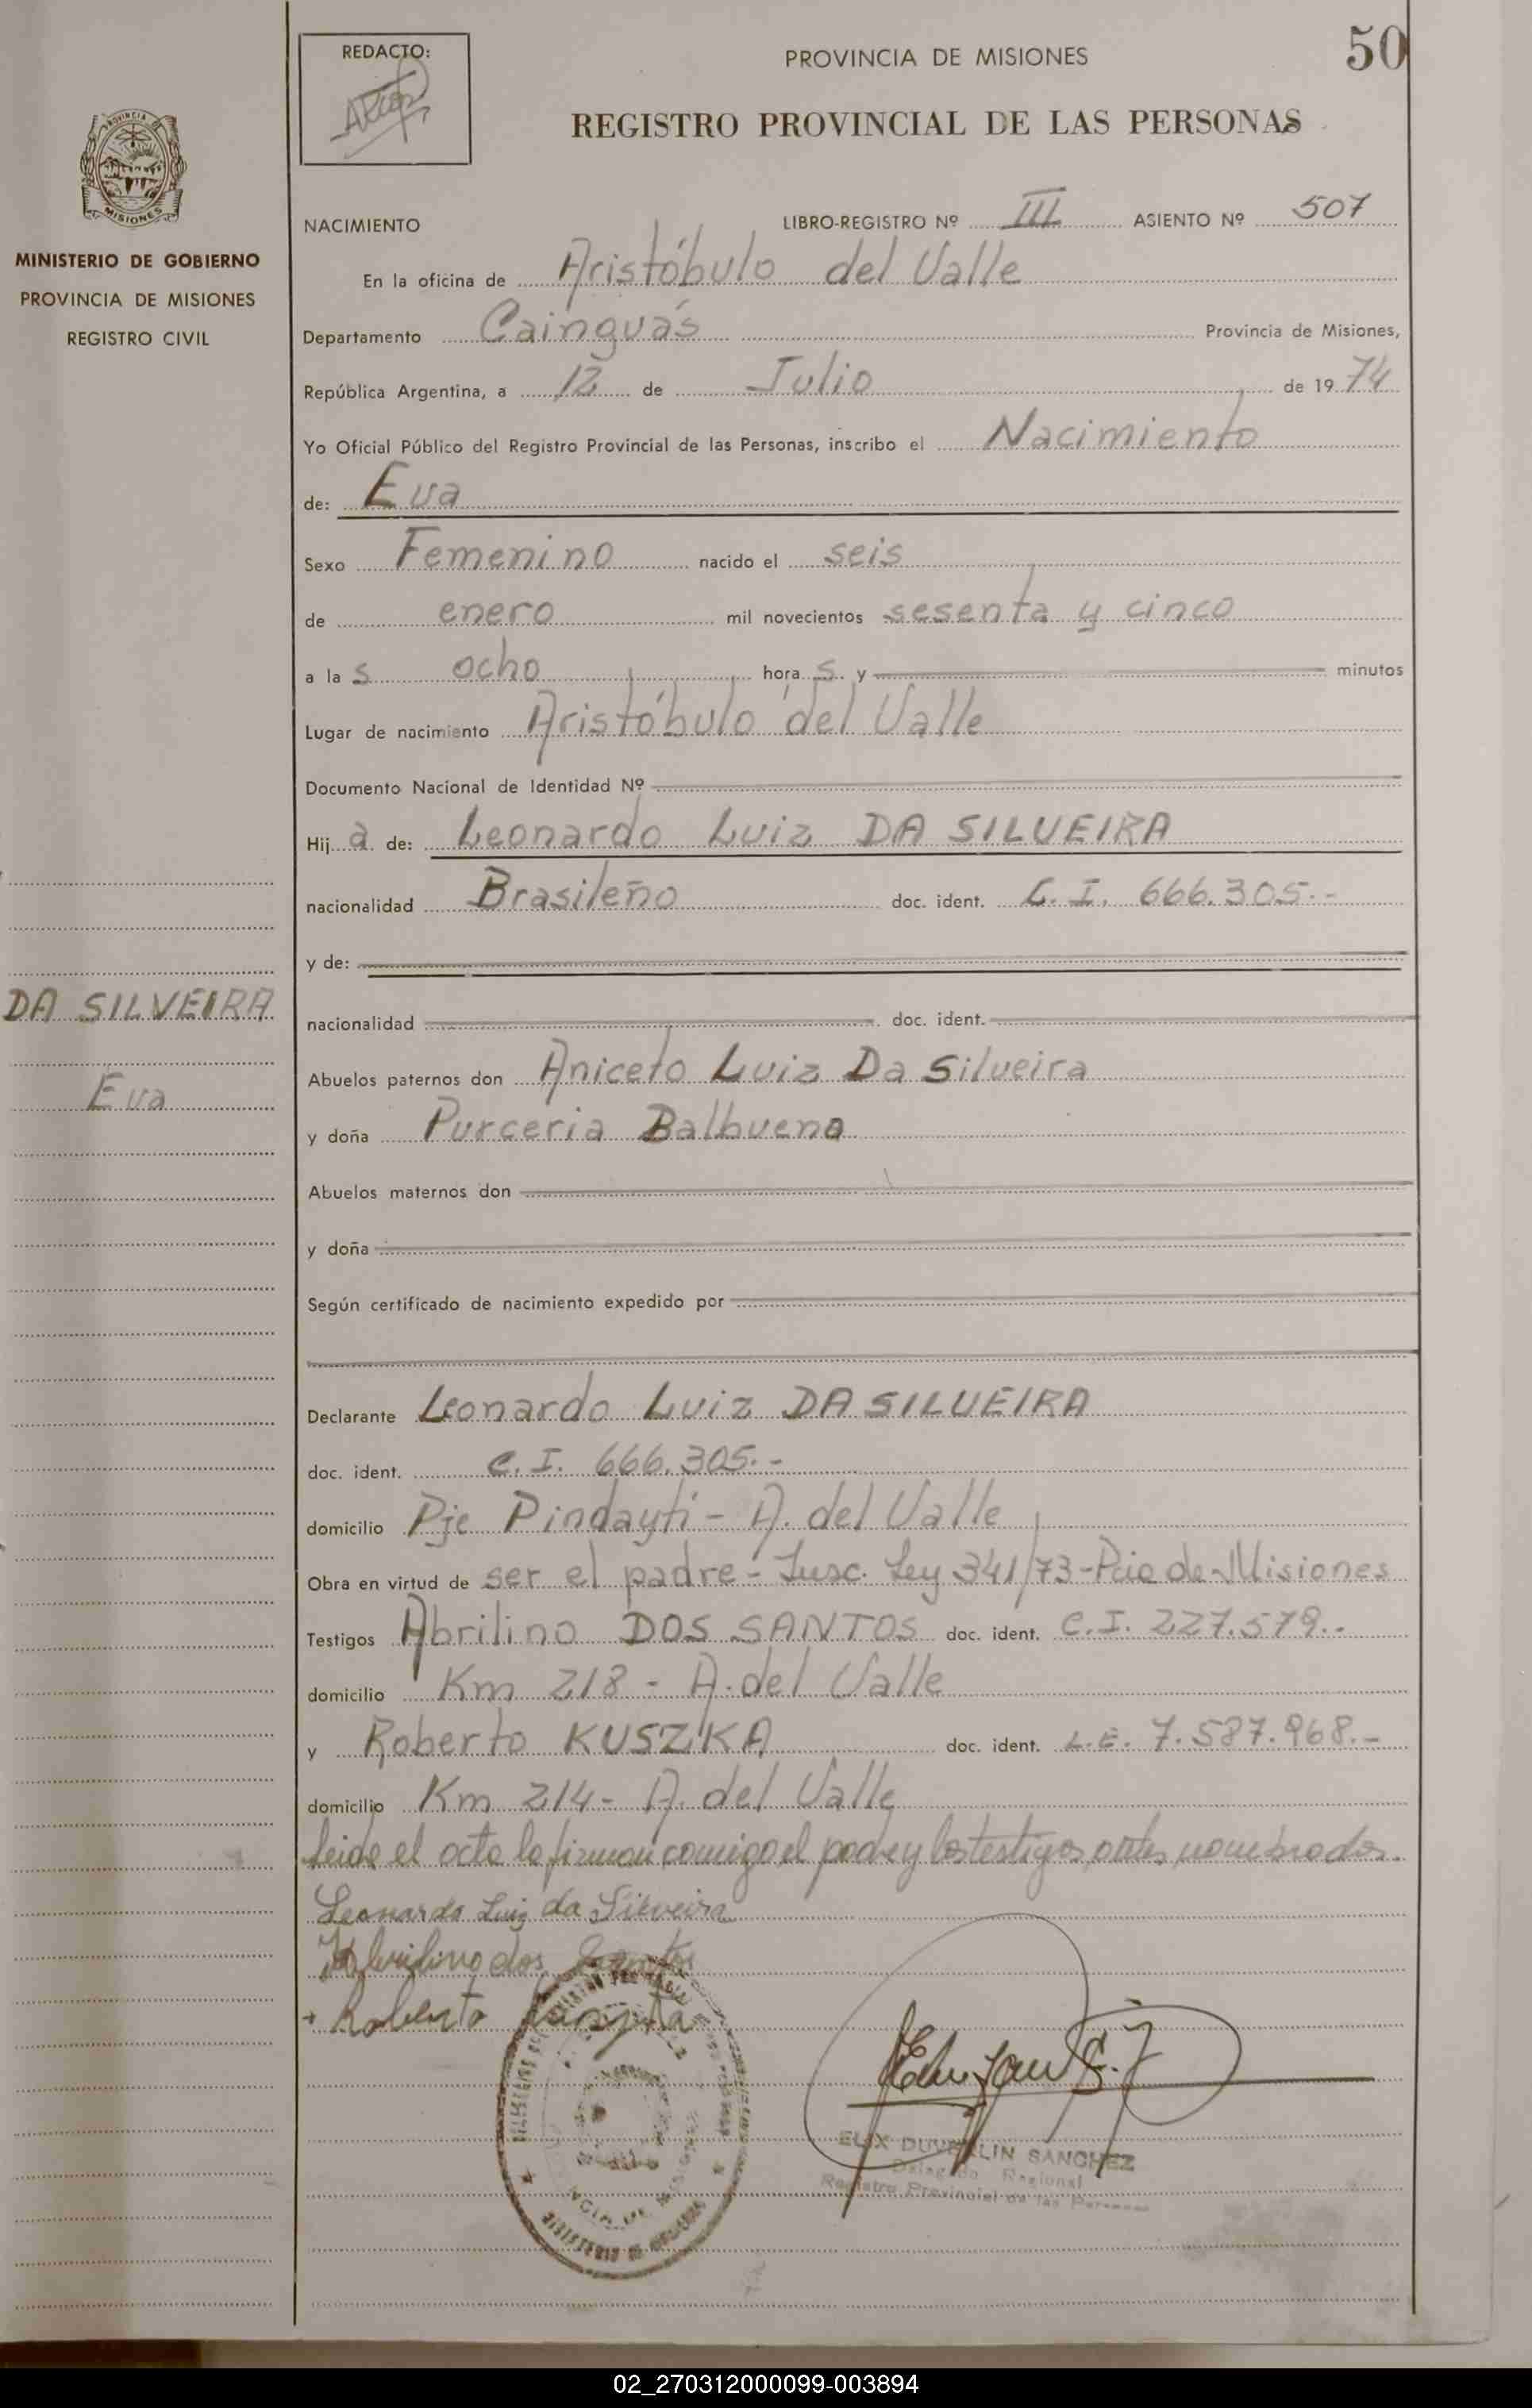 50
REDACTO:
PROVINCIA DE MISIONES
REGISTRO PROVINCIAL DE LAS PERSONAS
PROVINCIA DE
MISIONES
MINISTERIO DE GOBIERNO
PROVINCIA DE MISIONES
REGISTRO CIVIL
NACIMIENTO LIBRO-REGISTRO Nº III ASIENTO Nº 507
En la oficina de Aristóbulo del Valle
Departamento Cainguás Provincia de Misiones,
República Argentina, a 12 de Julio de 1974
Yo Oficial Público del Registro Provincial de las Personas, inscribo el Nacimiento
de: Eva
Sexo Femenino nacido el seis
de enero mil novecientos sesenta y cinco
a las ocho horas y minutos
Lugar de nacimiento Aristóbulo del Valle
Documento Nacional de Identidad Nº
Hija de: Leonardo Luiz DA SILVEIRA
nacionalidad Brasileño doc. ident. C.I. 666.305.-
y de:
DA SILVEIRA
nacionalidad doc. ident.
Eva
Abuelos paternos don Aniceto Luiz Da Silveira
y doña Purceria Balbuena
Abuelos maternos don
y doña
Según certificado de nacimiento expedido por
Declarante Leonardo Luiz DA SILVEIRA
doc. ident. C.I. 666.305.-
domicilio Pje Pindayti - A. del Valle
Obra en virtud de ser el padre - Insc. Ley 341/73 - Pcia de Misiones
Testigos Abrilino DOS SANTOS doc. ident. C.I. 227.579.-
domicilio Km 218 - A. del Valle
y Roberto KUSZKA doc. ident. L.E. 7.587.968.-
domicilio Km 214 - A. del Valle
Leida el acta la firman comigo el padre y los testigos antes nombrados.
Leonardo Luiz da Silveira
Abrilino dos Santos
Roberto
ELIX DUVERLIN SANCHEZ
Delegado Regional
Registro Provincial de las Personas
02_270312000099-003894